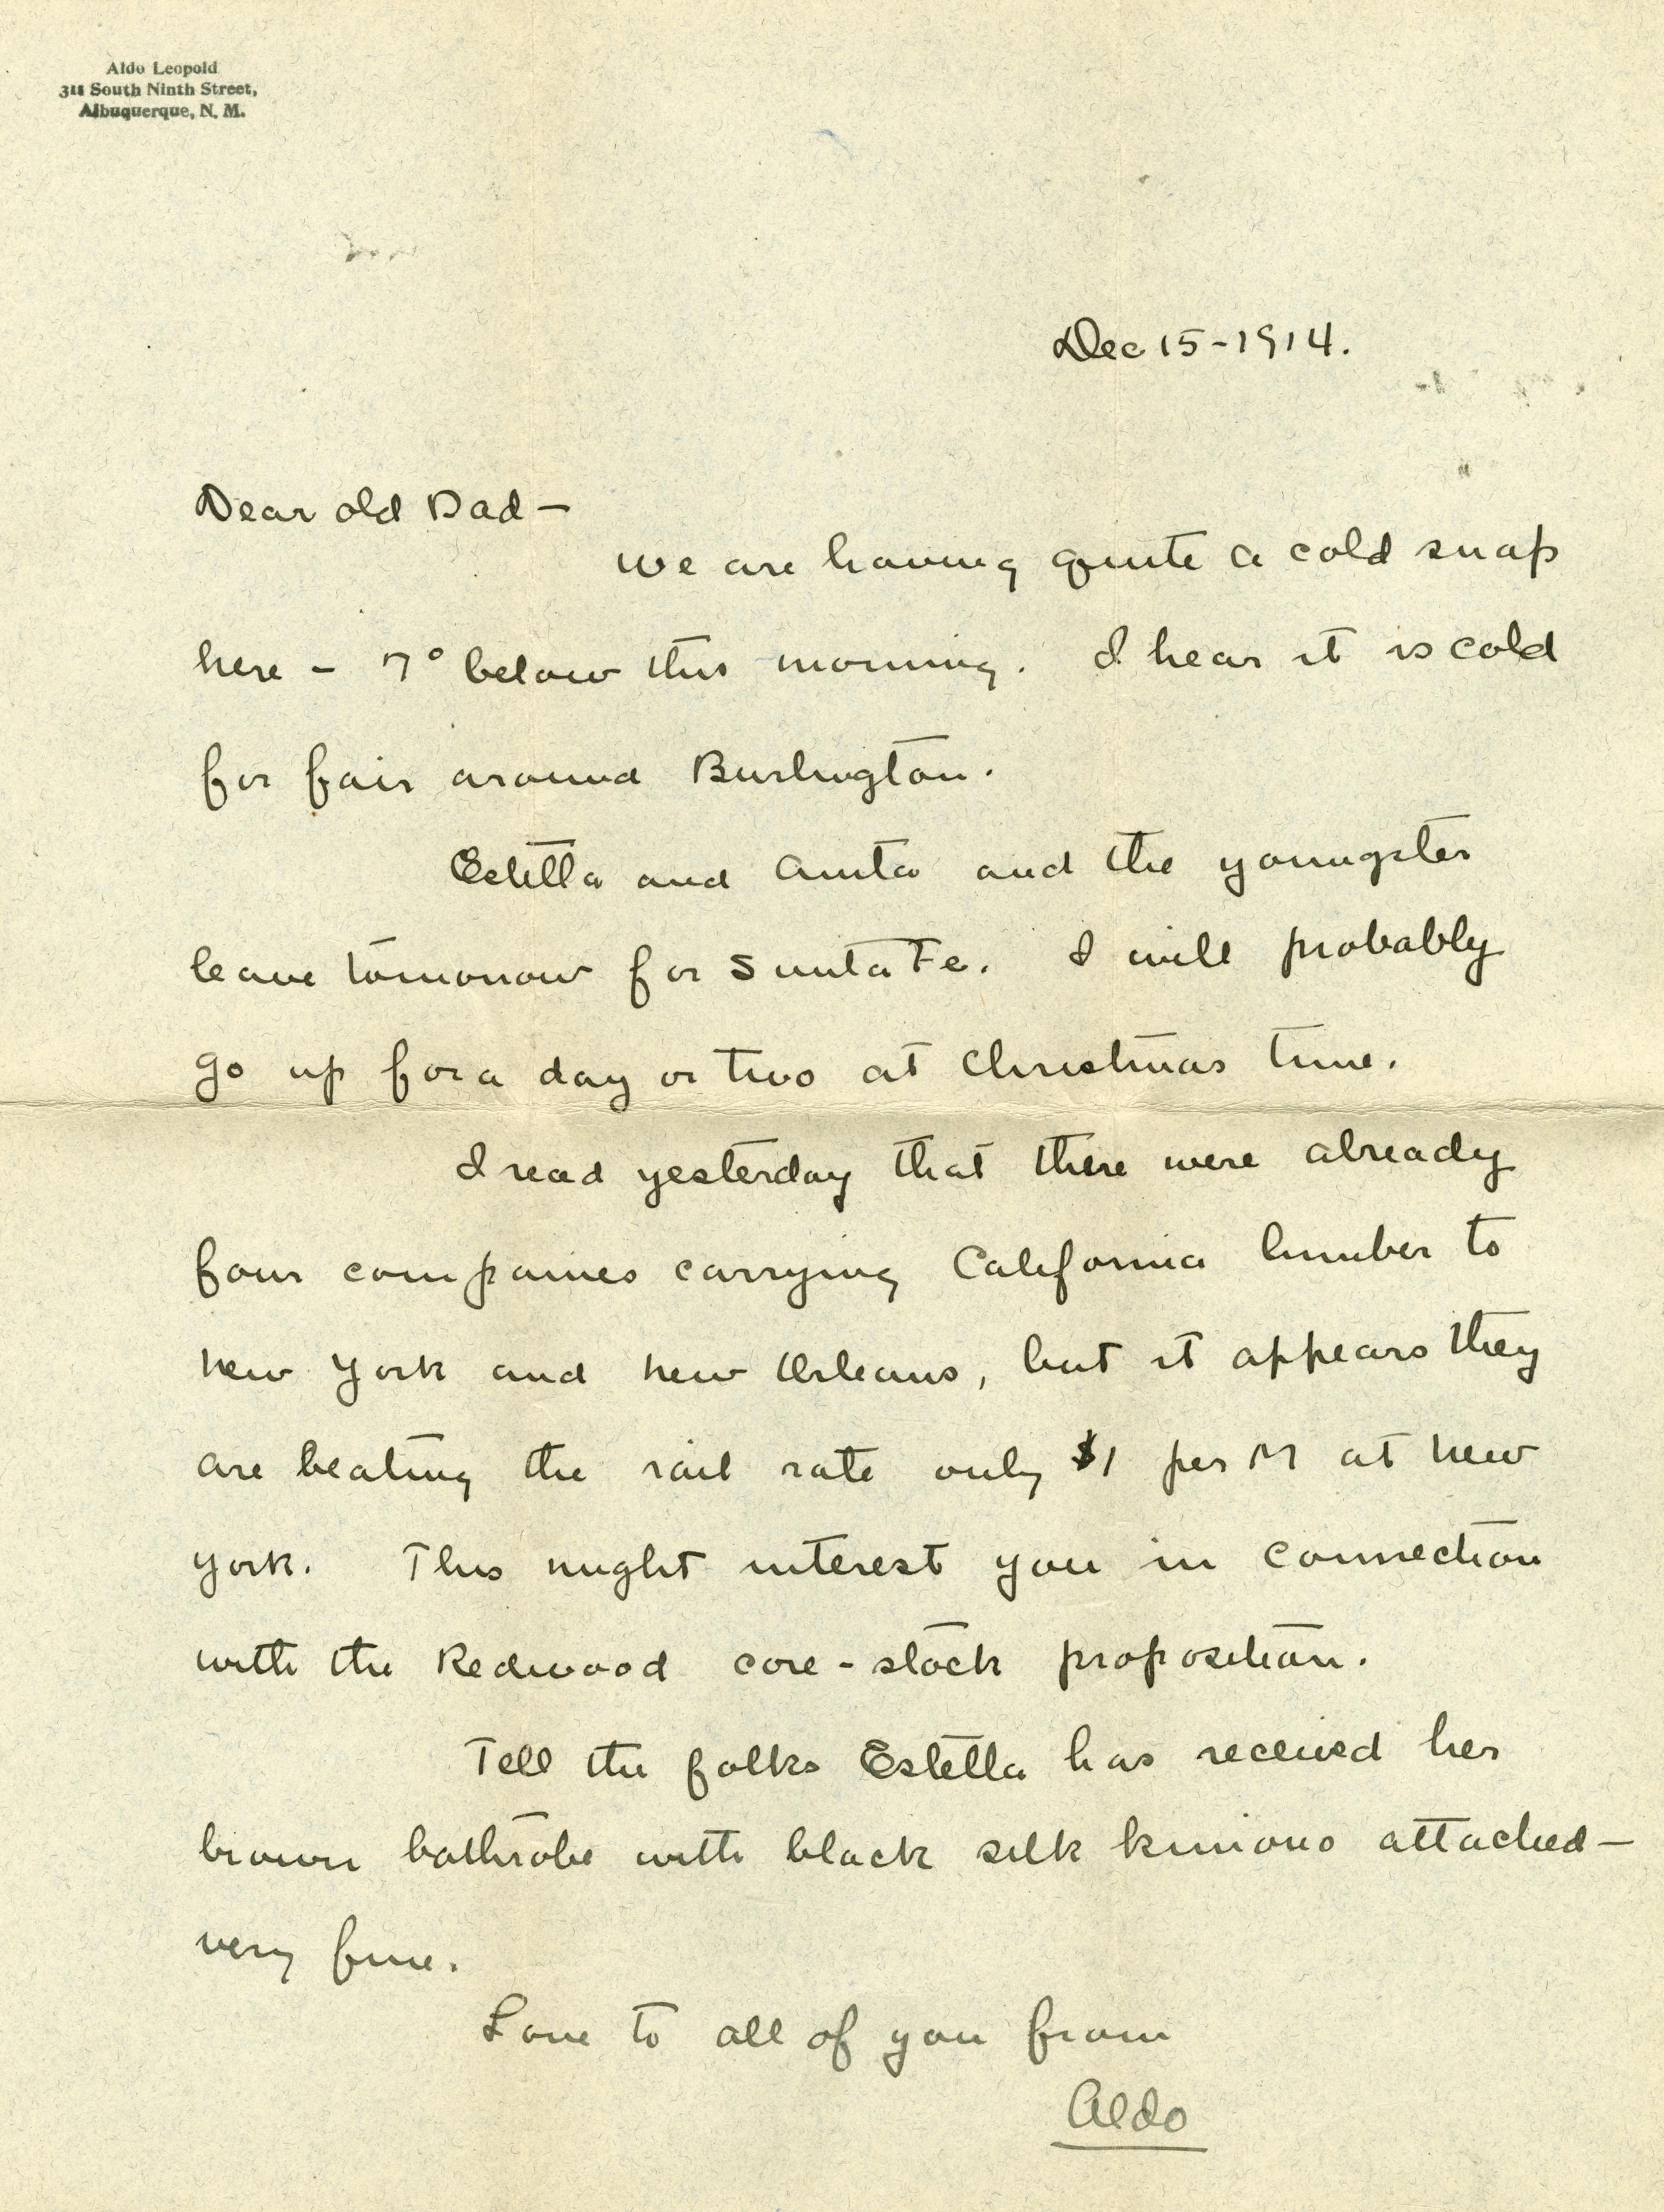 Aldo Leopold
311 South Ninth Street,
Albuquerque, N. M.
Dec 15-1914.
Dear old Dad—
We are having quite a cold snap
here – 7° below this morning. I hear it is cold
for fair around Burlington.
Estella and Anita and the youngster
leave tomorrow for Santa Fe. I will probably
go up for a day or two at Christmas time.
I read yesterday that there were already
four companies carrying California lumber to
New York and New Orleans, but it appears they
are beating the rail rate only $1 per M at New
York. This might interest you in connection
with the Redwood core-stock proposition.
Tell the folks Estella has received her
brown bathrobe with black silk kimono attached—
very fine.
Love to all of you from
Aldo